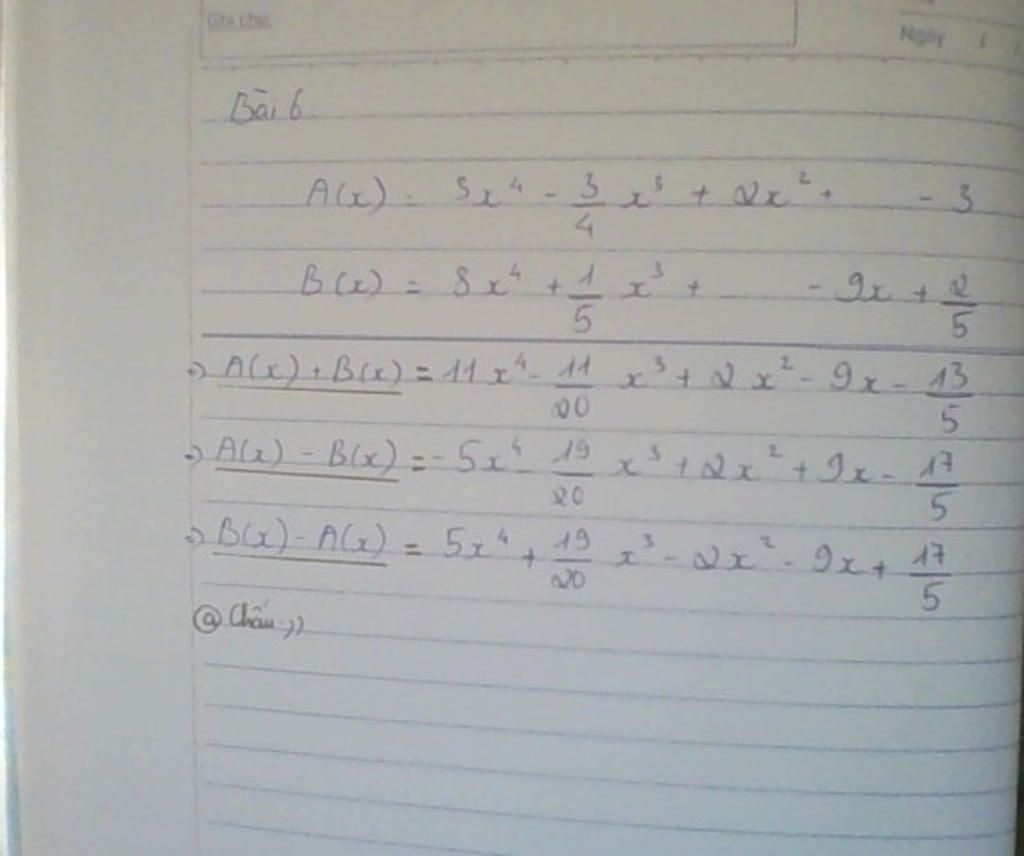 Ghi chú:
Ngày / /
Bài 6.
A(x) = 3x⁴ - 3/4 x³ + 2x² + - 3
B(x) = 8x⁴ + 1/5 x³ + ... - 9x + 2/5
=> A(x) + B(x) = 11x⁴ - 11/20 x³ + 2x² - 9x - 13/5
=> A(x) - B(x) = - 5x⁴ - 19/20 x³ + 2x² + 9x - 17/5
=> B(x) - A(x) = 5x⁴ + 19/20 x³ - 2x² - 9x + 17/5